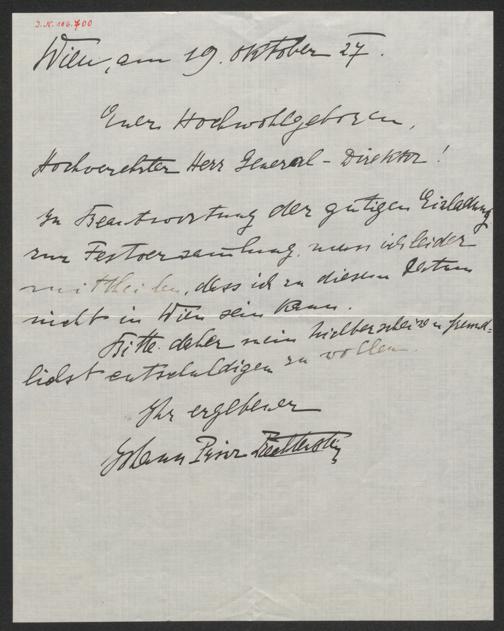 J.N. 106.700
Wien, am 19. Oktober 27.
Euer Hochwohlgeboren,
Hochverehrter Herr General-Direktor!
In Beantwortung der gütigen Einladung
zur Festversammlung, muss ich leider
mitteilen, dass ich zu diesem Datum
nicht in Wien sein kann.
Bitte daher mein Nichterscheinen freund=
lichst entschuldigen zu wollen.
Ihr ergebener
Johann Prinz Liechtenstein